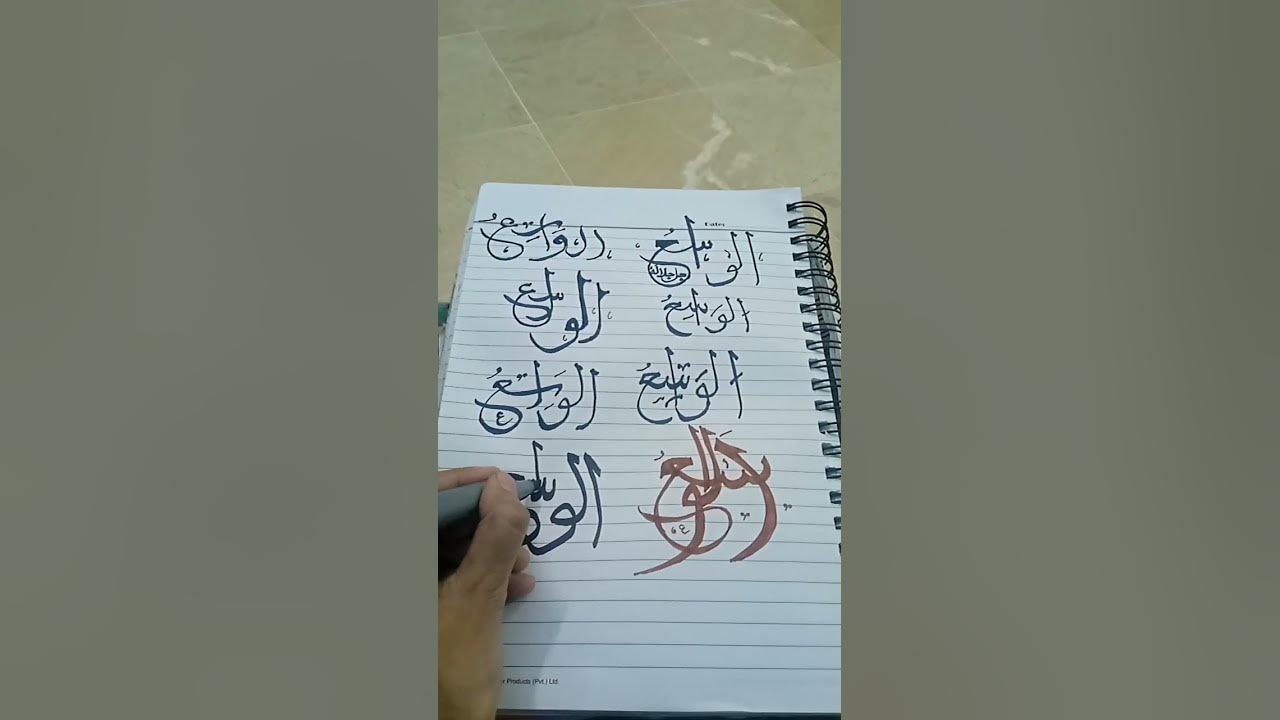 Date:
الوٰسِعُ جل جلالہ الوَاسِعُ
الوَاسِعُ الواسع
الوَاسِعُ الوَاسِعُ
الواسع الواسع
r Products (Pvt.) Ltd.